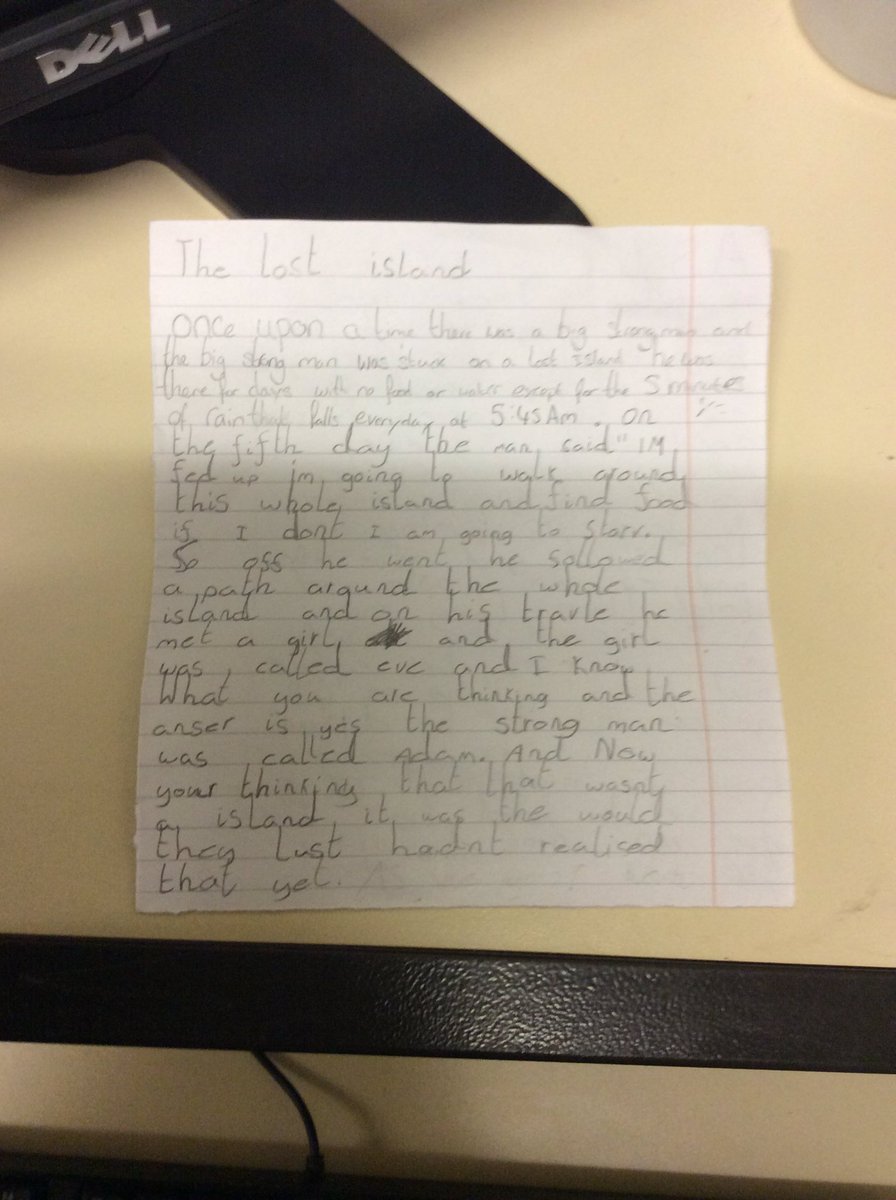 DELL
The lost island
Once upon a time there was a big strong man and
the big strong man was stuck on a lost island he was
there for days with no food or water except for the 5 minutes
of rain that falls everyday at 5:45Am . On
the fifth day the man said "IM
fed up im going to walk around
this whole island and find food
if I dont I am going to starv.
So off he went he followed
a path around the whole
island and on his travle he
met a girl and the girl
was called eve and I know
What you are thinking and the
anser is yes the strong man
was called Adam. And Now
your thinking that that wasnt
a island it was the would
they Just hadnt realised
that yet.